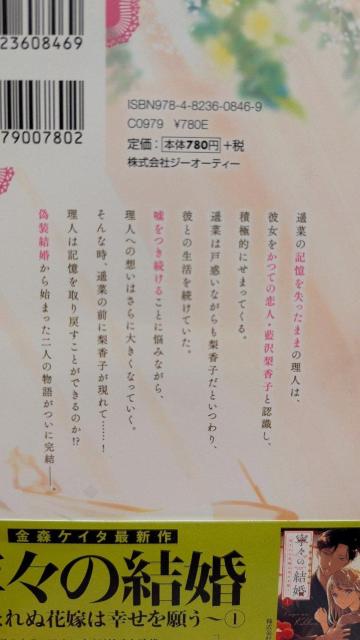 23608469
79007802
ISBN978-4-8236-0846-9
C0979 ¥780E
定価：本体780円+税
株式会社ジーオーティー
遥菜の記憶を失ったままの理人は、
彼女をかつての恋人・藍沢梨香子と認識し、
積極的にせまってくる。
遥菜は戸惑いながらも梨香子だといつわり、
彼との生活を続けていた。
嘘をつき続けることに悩みながら、
理人への想いはさらに大きくなっていく。
そんな時、遥菜の前に梨香子が現れて……！
理人は記憶を取り戻すことができるのか!?
偽装結婚から始まった二人の物語がついに完結――。
金森ケイタ最新作
々の結婚
れぬ花嫁は幸せを願う～①
寧々の結婚